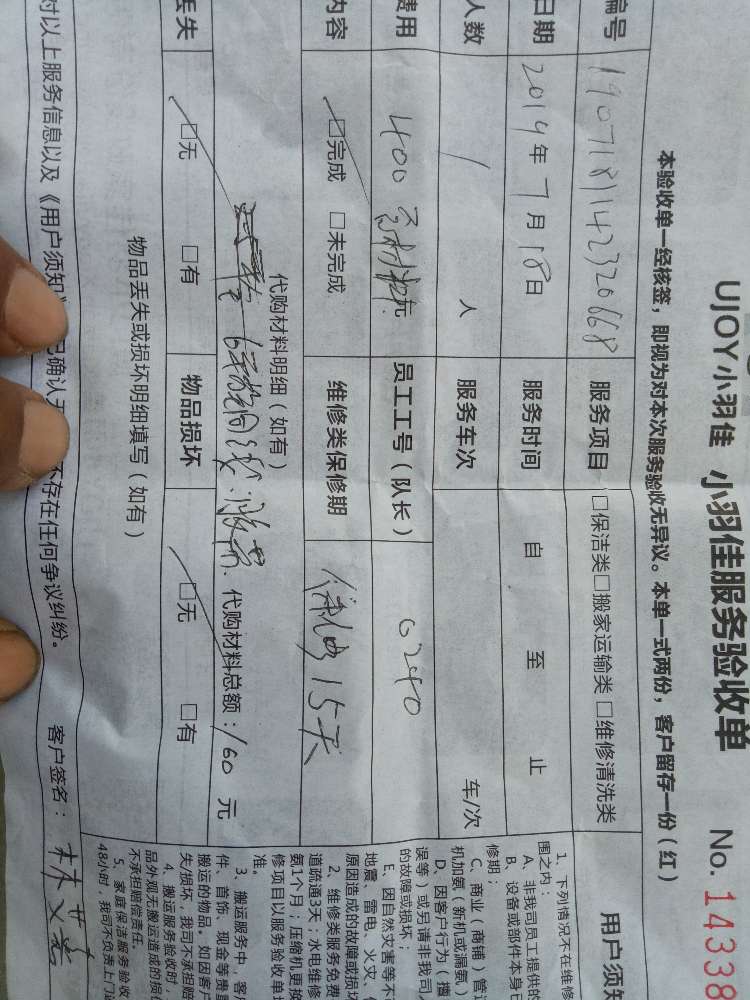 UJOY小羽佳 小羽佳服务验收单 No. 14338
本验收单一经核签，即视为对本次服务验收无异议。本单一式两份，客户留存一份（红）
编号 1907181142320668 服务项目 □保洁类□搬家运输类 □维修清洗类
日期 2019年7月18日 服务时间 自 至 止
人数 / 人 服务车次 车/次
费用 400 元 员工工号（队长） 0240
内容 □完成 □未完成 维修类保修期 15天
代购材料明细（如有）
代购材料总额：160 元
丢失 □无 □有 物品损坏 □无 □有
物品丢失或损坏明细填写（如有）
对以上服务信息以及《用户须知》 已确认 不存在任何争议纠纷。 客户签名：
用户须知
1、下列情况不在维修
围之内：
A、非我司员工提供的
B、设备或部件本身已
修期；
C、商业（商铺）管
机加氨（新机或漏氨）
D、因客户行为（擅
误等）或另请非我司
的故障或损坏；
E、因自然灾害等不
地震、雷电、火灾、
原因造成的故障或损坏
2、维修类服务免费
道疏通3天；水电维修
氨1个月；压缩机更换
修项目以服务验收单
准。
3、搬运服务中，客
件、首饰、现金等贵重
搬运的物品，如因客户
失/损坏，我司不承担赔
4、搬运服务验收时，
品外观无搬运造成的损
不承担赔偿责任。
5、家庭保洁服务验收
48小时，我司不负责上门